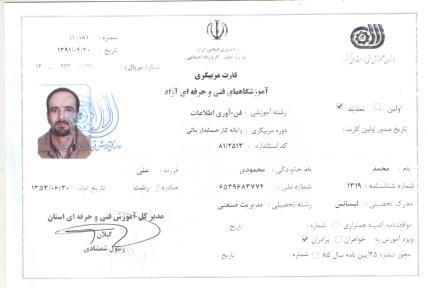 شماره : ۱/۰۱۸۱
تاریخ : ۱۳۹۱/۰۴/۲۰
شماره سریال :
جمهوری اسلامی ایران
وزارت تعاون ، کار و رفاه اجتماعی
سازمان آموزش فنی و حرفه ای کشور
کارت مربیگری
آموزشگاههای فنی و حرفه ای آزاد
اولین تمدید
رشته آموزشی : فن-آوری اطلاعات
تاریخ صدور اولین کارت :
دوره مربیگری : رایانه کار حسابدار مالی
کد استاندارد : ۸۱/۲۵۱۳
نام : محمد نام خانوادگی : محمودی فرزند : علی
شماره شناسنامه : ۱۳۱۹ شماره ملی : ۶۵۳۹۶۸۳۷۷۴ صادره از : رشت تاریخ تولد : ۱۳۵۳/۰۶/۳۰
مدرک تحصیلی : لیسانس رشته تحصیلی : مدیریت صنعتی
موافقتنامه کمیته همترازی شماره : تاریخ :
ویژه آموزش به خواهران برادران
مجوز تبصره ۳۵ آیین نامه سال ۸۵ شماره : تاریخ :
مدیر کل آموزش فنی و حرفه ای استان
گیلان
رسول شمشادی